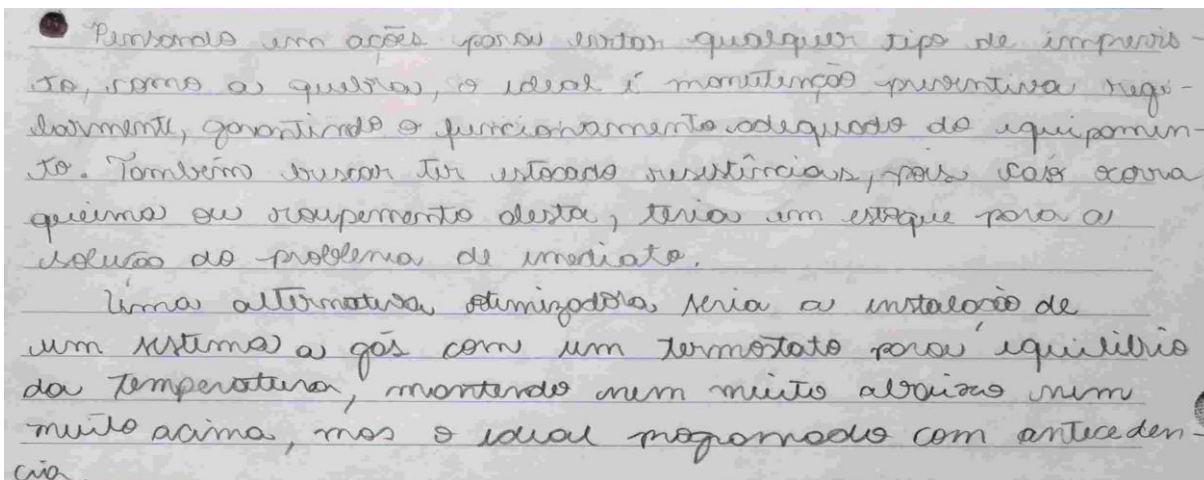 Pensando em ações para evitar qualquer tipo de imprevis-
to, como a quebra, o ideal é manutenção preventiva regu-
larmente, garantindo o funcionamento adequado do equipamen-
to. Também buscar ter estocado resistências, pois caso ocorra
queima ou roupemento desta, teria um estoque para a
solução do problema de imediato.
Uma alternativa otimizadora seria a instalação de
um sistema a gás com um termostato para equilibrio
da temperatura, mantendo nem muito abaixo nem
muito acima, mas o ideal programado com anteceden-
cia.